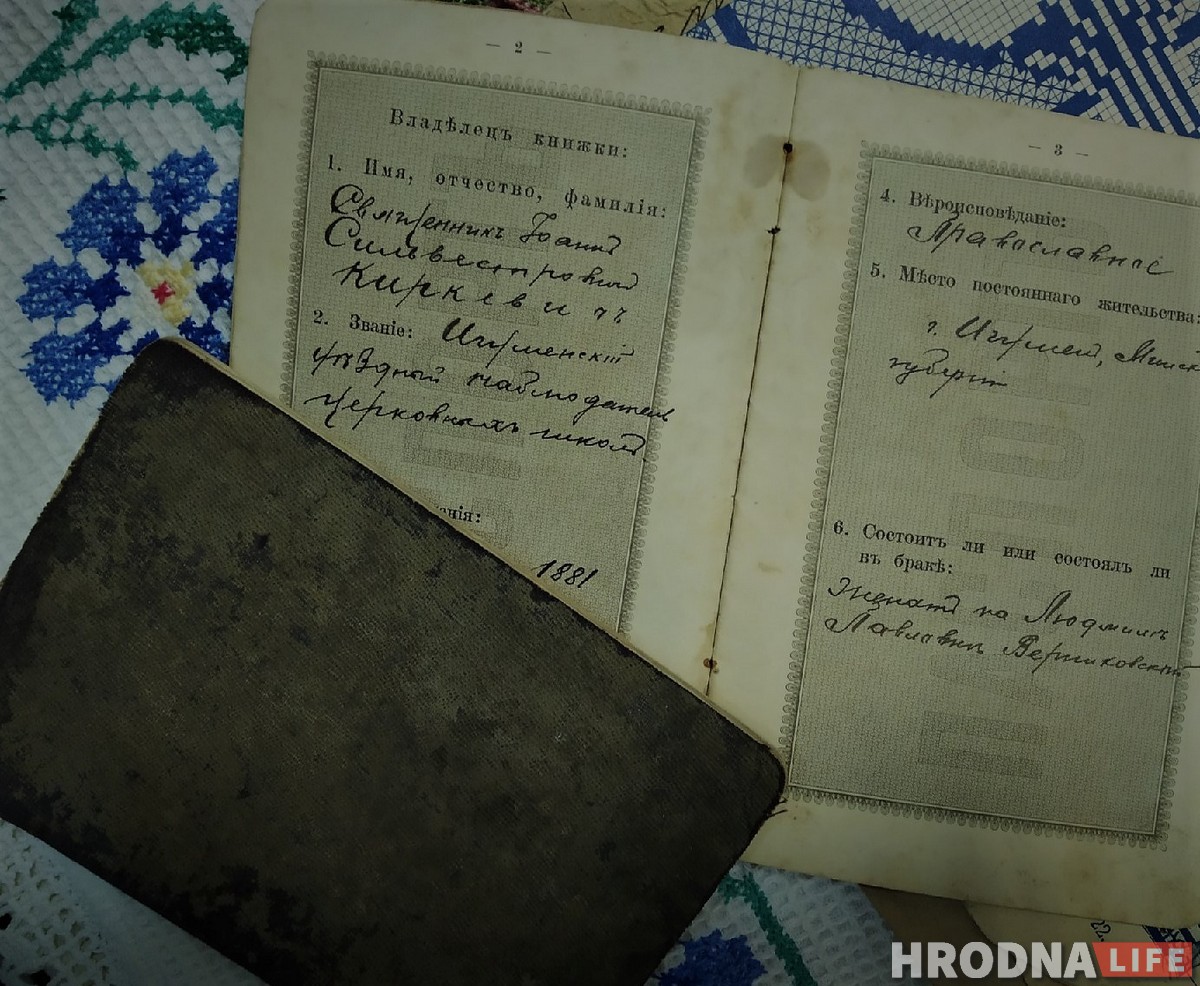 — 2 —
Владѣлецъ книжки:
1. Имя, отчество, фамилія:
Священникъ Іоаннъ
Сильвестровичъ
Киркевичъ
2. Званіе: Игуменскій
уѣздный наблюдатель
церковныхъ школъ.
нія:
1881
— 3 —
4. Вѣроисповѣданіе:
Православное
5. Мѣсто постояннаго жительства:
г. Игумен, Минск
губерніи
6. Состоитъ ли или состоялъ ли
въ бракѣ:
Женатъ на Людмилѣ
Павловнѣ
22.
HRODNA LIFE